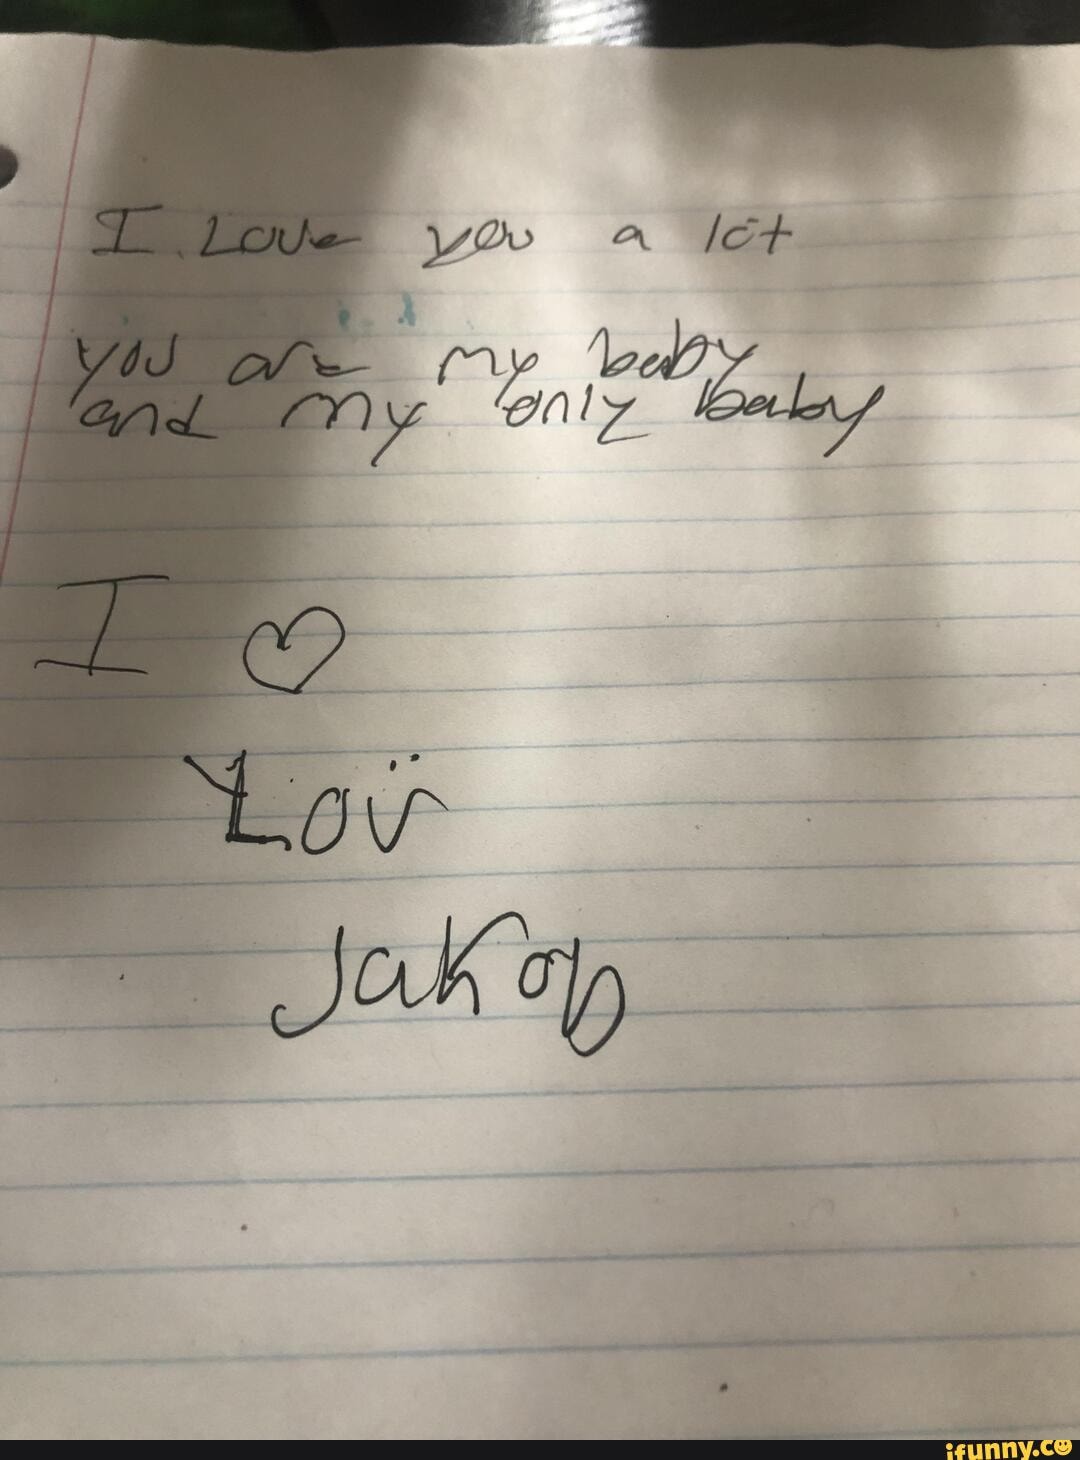 I Love you a lot
you are my baby
and my only baby
I ♡
You
Jakob
ifunny.co